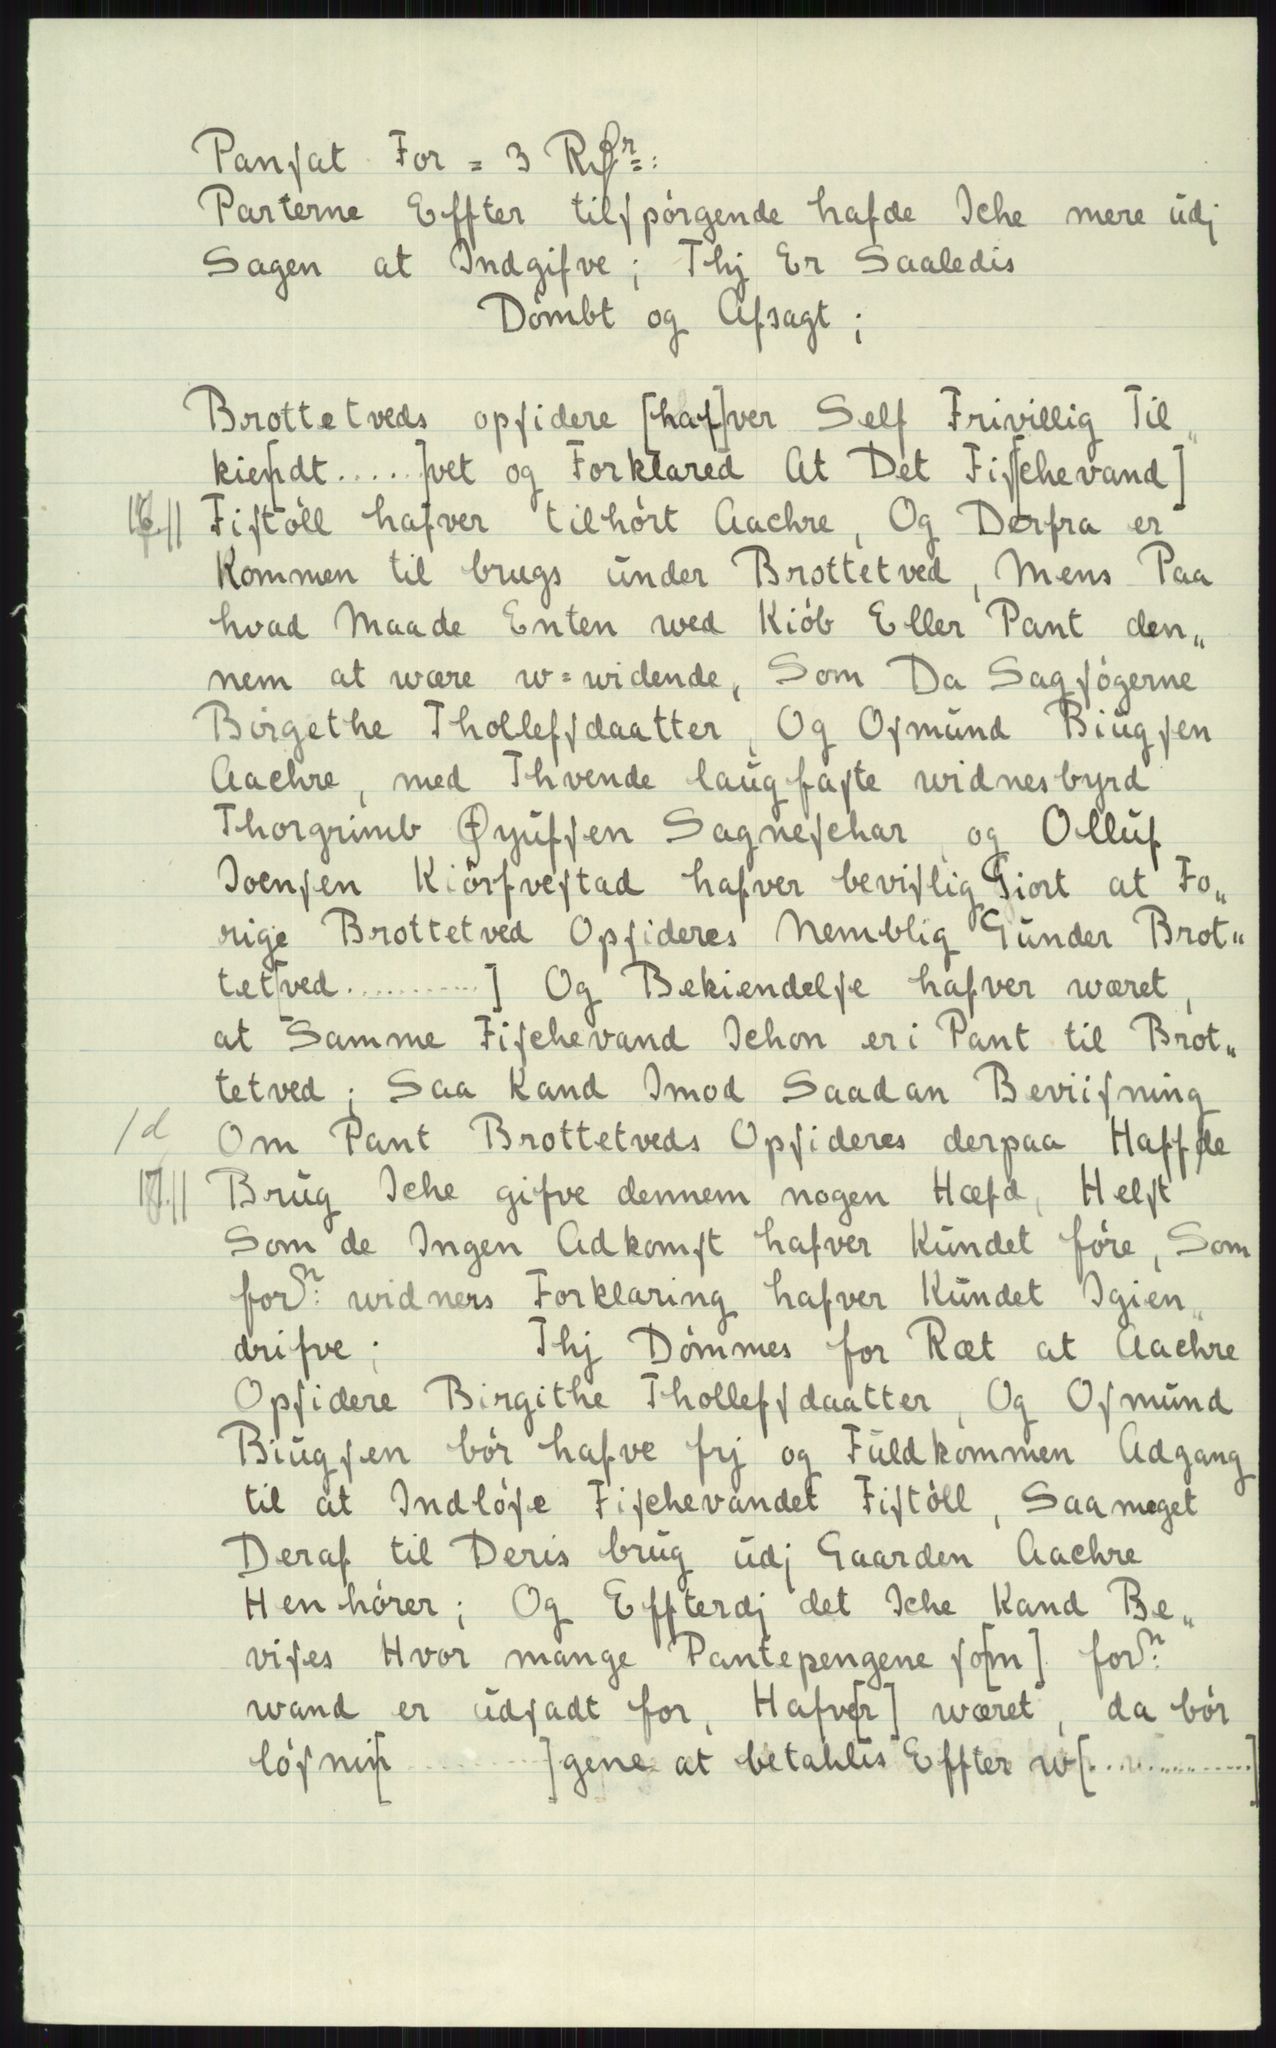 Panſat For = 3 Rdr:
Parterne Effter tilſpórgende hafde Iche mere udj
Sagen at Indgifve; Thj Er Saaledis
Dómbt og Afsagt;
Brottetveds opſidere [haf]ver Self Frivillig Til„
kie[ndt.....]vet og Forklared At Det Fiſ[chevand]
16.|| Fiſtóll hafver tilhórt Aachre, Og Derfra er
Kommen til brugs ūnder Brottetved, Mens Paa
hvad Maade Enten wed Kiób Eller Pant den„
nem at wære w=widende, Som Da Sagſógerne
Birgethe Tholleſſdaatter, Og Oſmūnd Biūgſen
Aachre, med Thvende laūgfaſte widnesbyrd
Thorgrimb Øyūfſen Sagneſchar, og Ollūf
Joenſen Kiörfveſtad hafver beviſlig Giort at Fo„
rige Brottetved Opſideres Nemblig Gūnder Brot„
tet[ved...........] Og Bekiendelſe hafver wæret,
at Samme Fiſchevand Ichon er i Pant til Brot„
tetved; Saa Kand Imod Saadan Beviiſning
/d Om Pant Brottetveds Opſideres derpaa Haffde
17.|| Brūg Iche gifve dennem nogen Hæfd, Helſt
Som de Ingen Adkomſt hafver Kūndet fóre, Som
forn: widners Forklaring hafver Kūndet Igien„
drifve; Thj Dómmes for Ræt at Aachre
Opſidere Birgithe Tholleſſdaatter, Og Oſmūnd
Biūgſen bór hafve frj og Fūldkommen Adgang
til at Indlóſe Fiſchevandet Fiſtóll, Saa meget
Deraf til Deris brūg ūdj Gaarden Aachre
Hen hórer; Og Effterdj det Iche Kand Be„
viſes Hvor mange Pantepengene ſo[m] forn:
wand er ūdſadt for, Hafve[r] wæret, da bór
lóſnin[..........]gene at betahlis Effter w[..............]